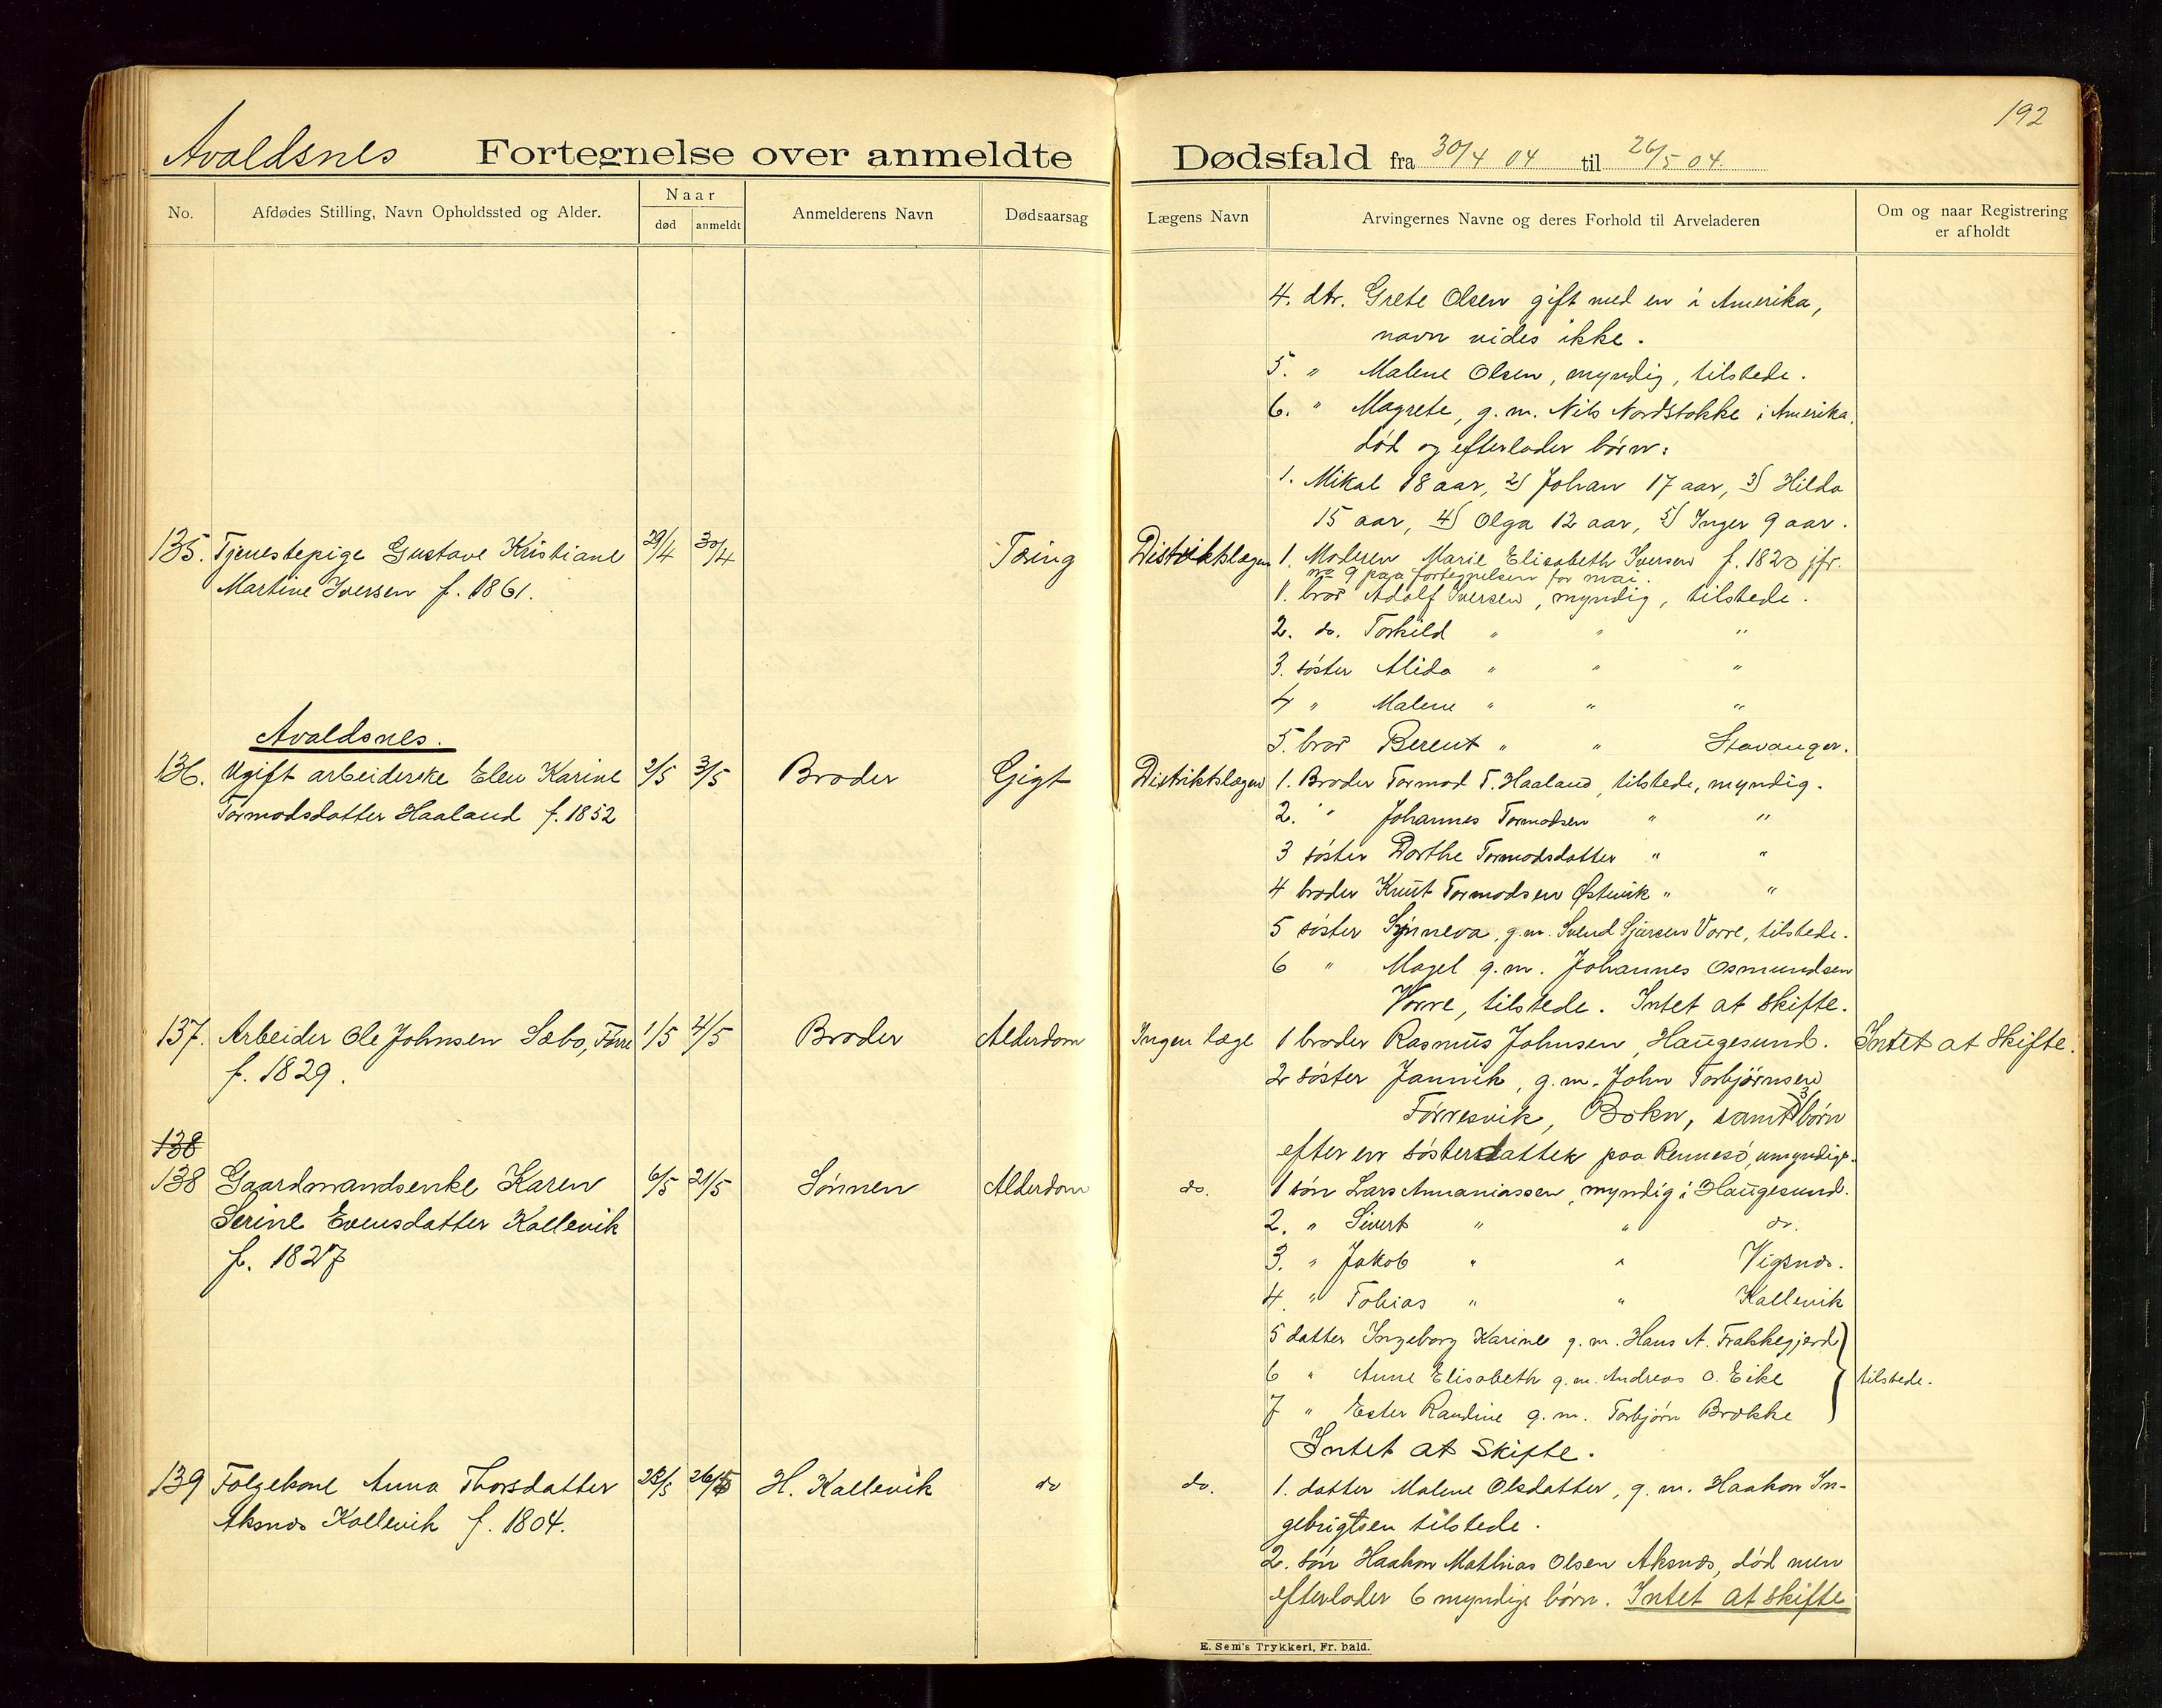 192
Avaldsnes Fortegnelse over anmeldte Dødsfald fra 30/4 04 til 26/5 04.
No. Afdødes Stilling, Navn Opholdssted og Alder. Naar død anmeldt Anmelderens Navn Dødsaarsag Lægens Navn Arvingernes Navne og deres Forhold til Arveladeren Om og naar Registrering er afholdt
4. dtr. Grete Olsen gift med en i Amerika,
navn vides ikke.
5. " Malene Olsen, myndig, tilstede.
6. " Magrete, g.m. Nils Nordstokke i Amerika,
død og efterlader børn:
1. Mikal 18 aar, 2) Johan 17 aar, 3) Hilda
15 aar, 4) Olga 12 aar, 5) Inger 9 aar.
135. Tjenestepige Gustave Kristiane 29/4 30/4 Tæring Distriktslægen 1. Moderen Marie Elisabeth Iversen f. 1820 jfr.
no 9 paa fortegnelsen for mai.
Martine Iversen f. 1861. 1. bror Adolf Iversen, myndig, tilstede.
2. do. Torkild " " "
3. søster Alida " " "
4 " Malene " " "
5. bror Berent " " Stavanger.
Avaldsnes.
136. Ugift arbeiderske Elen Karine 2/5 3/5 Broder Gigt Distriktslægen 1. Broder Tormod T. Haaland, tilstede, myndig.
Tormodsdatter Haaland f. 1852 2. " Johannes Tormodsen " "
3 søster Dorthe Tormodsdatter " "
4 broder Knut Tormodsen Østvik " "
5 søster Synneva, g.m. Svend Sjursen Vorre, tilstede.
6 " Magel g.m. Johannes Osmundsen
Vorre, tilstede. Intet at skifte.
137. Arbeider Ole Johnsen Sæbø, Førre 1/5 4/5 Broder Alderdom Ingen læge 1 broder Rasmus Johnsen, Haugesund. Intet at skifte.
f. 1829. 2 søster Jannik, g.m. John Torbjørnsen
Førresvik, Bokn, samt 3 børn
138
efter en søsterdatter paa Rennesø, umyndige.
138 Gaardmandsenke Karen 6/5 21/5 Sønnen Alderdom do. 1 søn Lars Annaniassen, myndig i Haugesund.
Serine Evensdatter Kallevik 2. " Sivert " " do.
f. 1827 3. " Jakob " " Vigsnæs.
4. " Tobias " " Kallevik
5 datter Ingeborg Karine g.m. Hans A. Frakkegjerd
6 " Anne Elisabeth g.m. Andreas O. Eike tilstede.
7 " Ester Randine g.m. Torbjørn Brække
Intet at skifte.
139 Folgekone Anna Thorsdatter 23/5 26/5 H. Kallevik do do. 1. datter Malene Olsdatter, g.m. Haakon In-
Aksnæs Kallevik f. 1804. gebrigtsen tilstede.
2. søn Haakon Mathias Olsen Aksnæs, død men
efterlader 6 myndige børn. Intet at skifte
E. Sem's Trykkeri, Fr. hald.